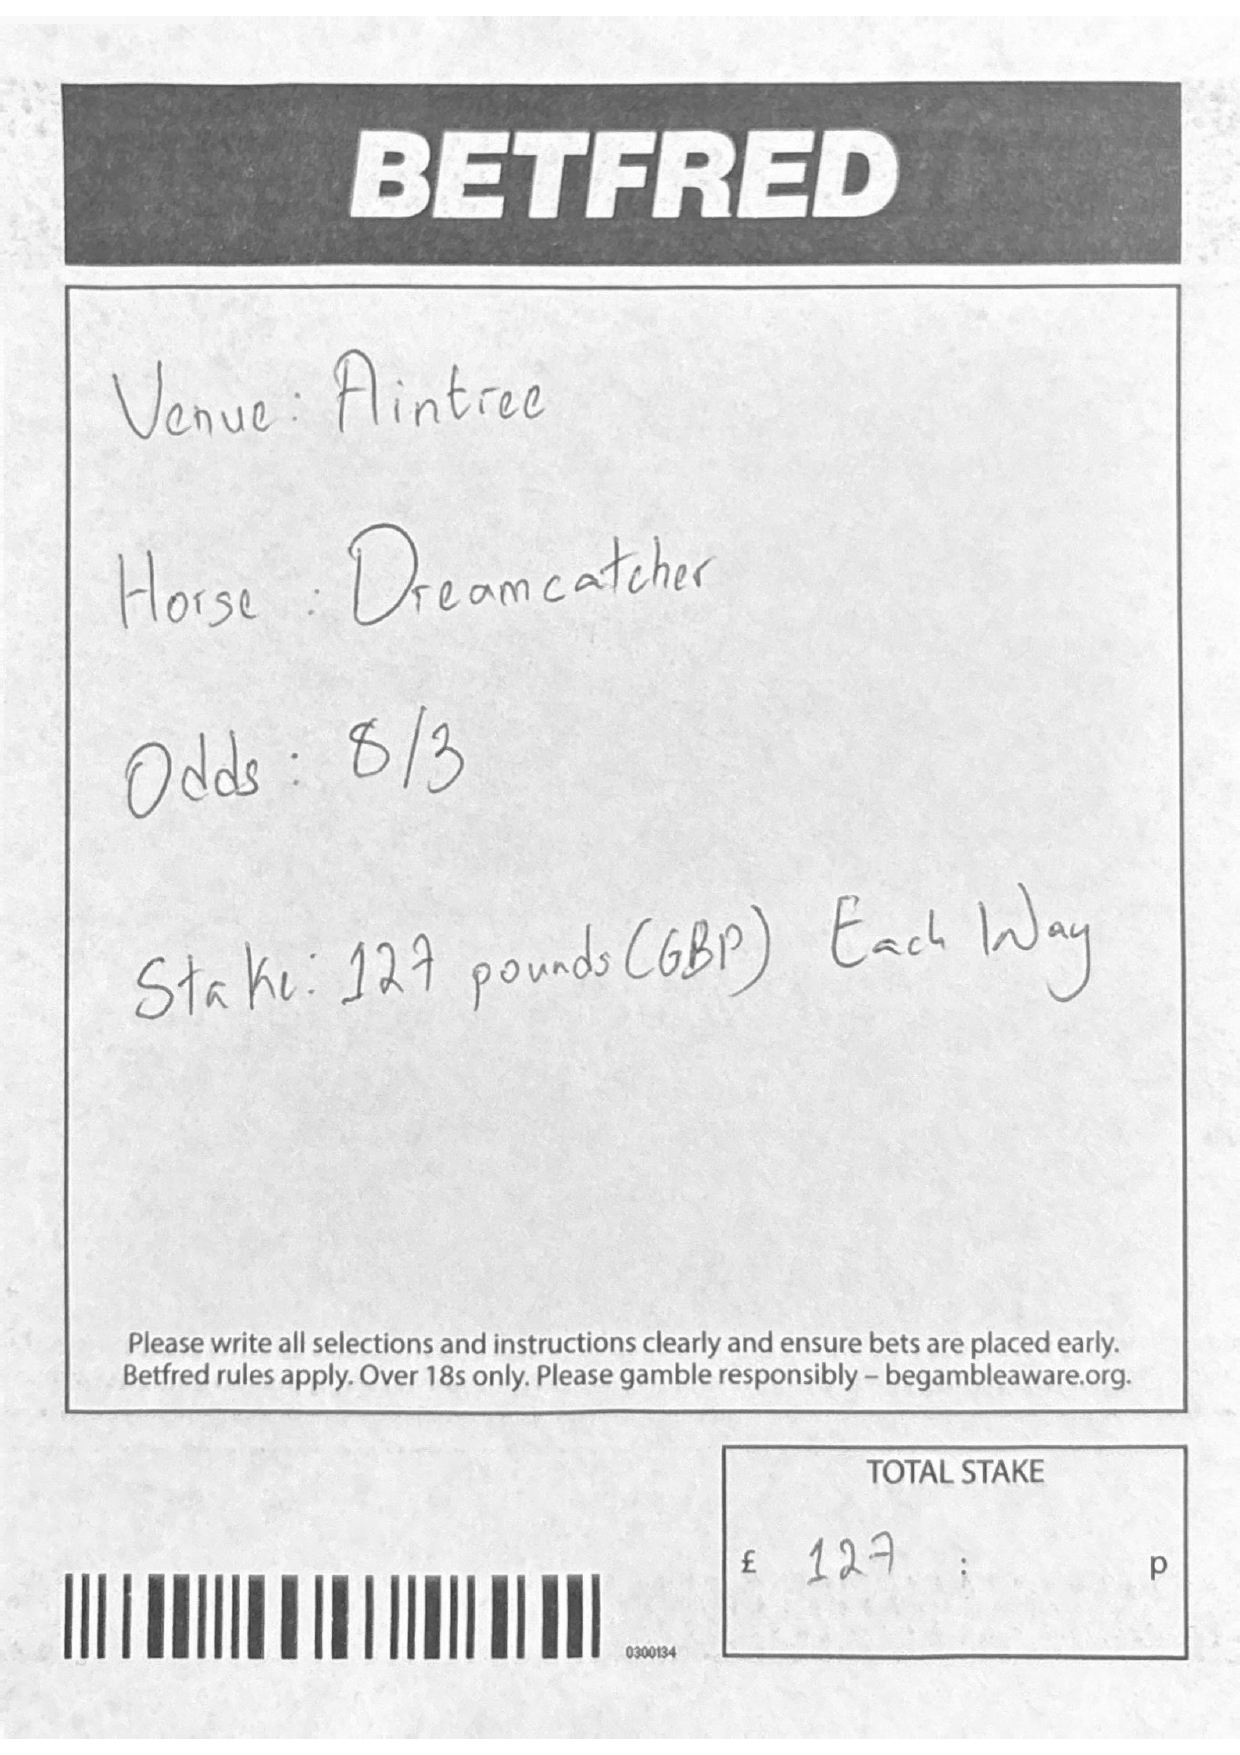 BETFRED
Venue: Aintree
Horse : Dreamcatcher
Odds : 8/3
Stake: 127 pounds (GBP) Each Way
Please write all selections and instructions clearly and ensure bets are placed early.
Betfred rules apply. Over 18s only. Please gamble responsibly – begambleaware.org.
TOTAL STAKE
£ 127 : p
0300134